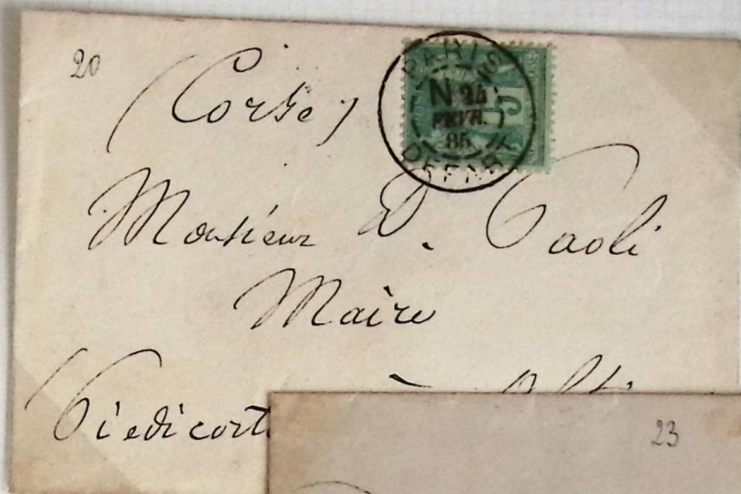 20
(Corse)
PARIS
N 24
FEVR.
85
DEPART
5
Monsieur D. Paoli
Maire
Piedicorte
23